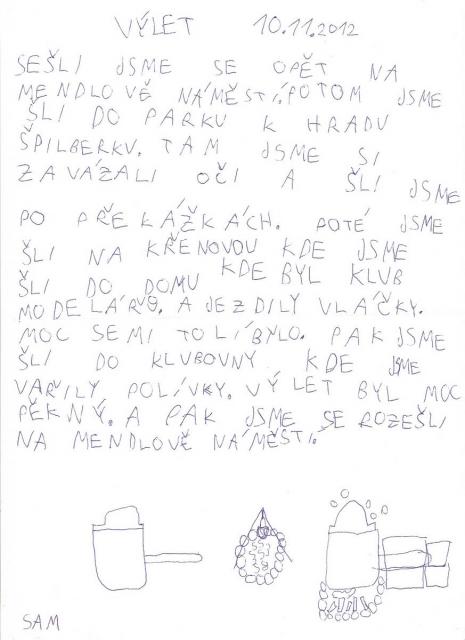 VÝLET 10.11.2012
SEŠLI JSME SE OPĚT NA
MENDLOVĚ NÁMĚSTÍ. POTOM JSME
ŠLI DO PARKU K HRADU
ŠPILBERKU. TAM JSME SI
ZAVÁZALI OČI A ŠLI JSME
PO PŘEKÁŽKÁCH. POTÉ JSME
ŠLI NA KŘENOVOU KDE JSME
ŠLI DO DOMU KDE BYL KLUB
MODELÁRŮ. A JEZDILY VLÁČKY.
MOC SE MI TO LÍBYLO. PAK JSME
ŠLI DO KLUBOVNY KDE JSME
VAŘILY POLÍVKY. VÝLET BYL MOC
PĚKNÝ. A PAK JSME SE ROZEŠLI
NA MENDLOVĚ NÁMĚSTÍ.
SAM